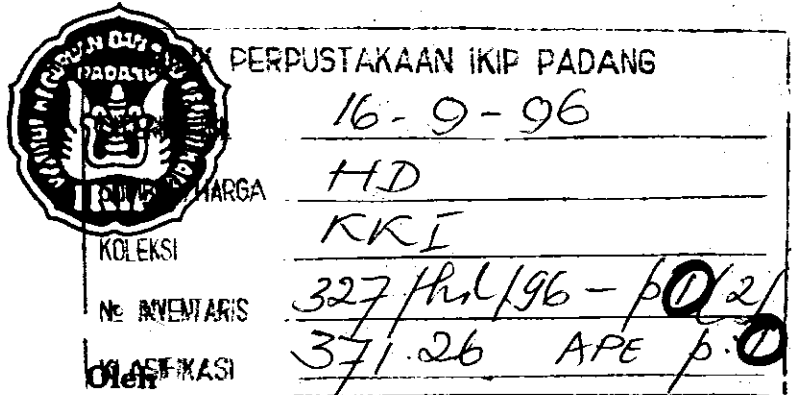 PERPUSTAKAAN IKIP PADANG
16-9-96
HARGA HD
KOLEKSI KKI
No INVENTARIS 327/hd/96-p1(2)
KLASIFIKASI 371.26 APE p.1
Oleh
PADANG